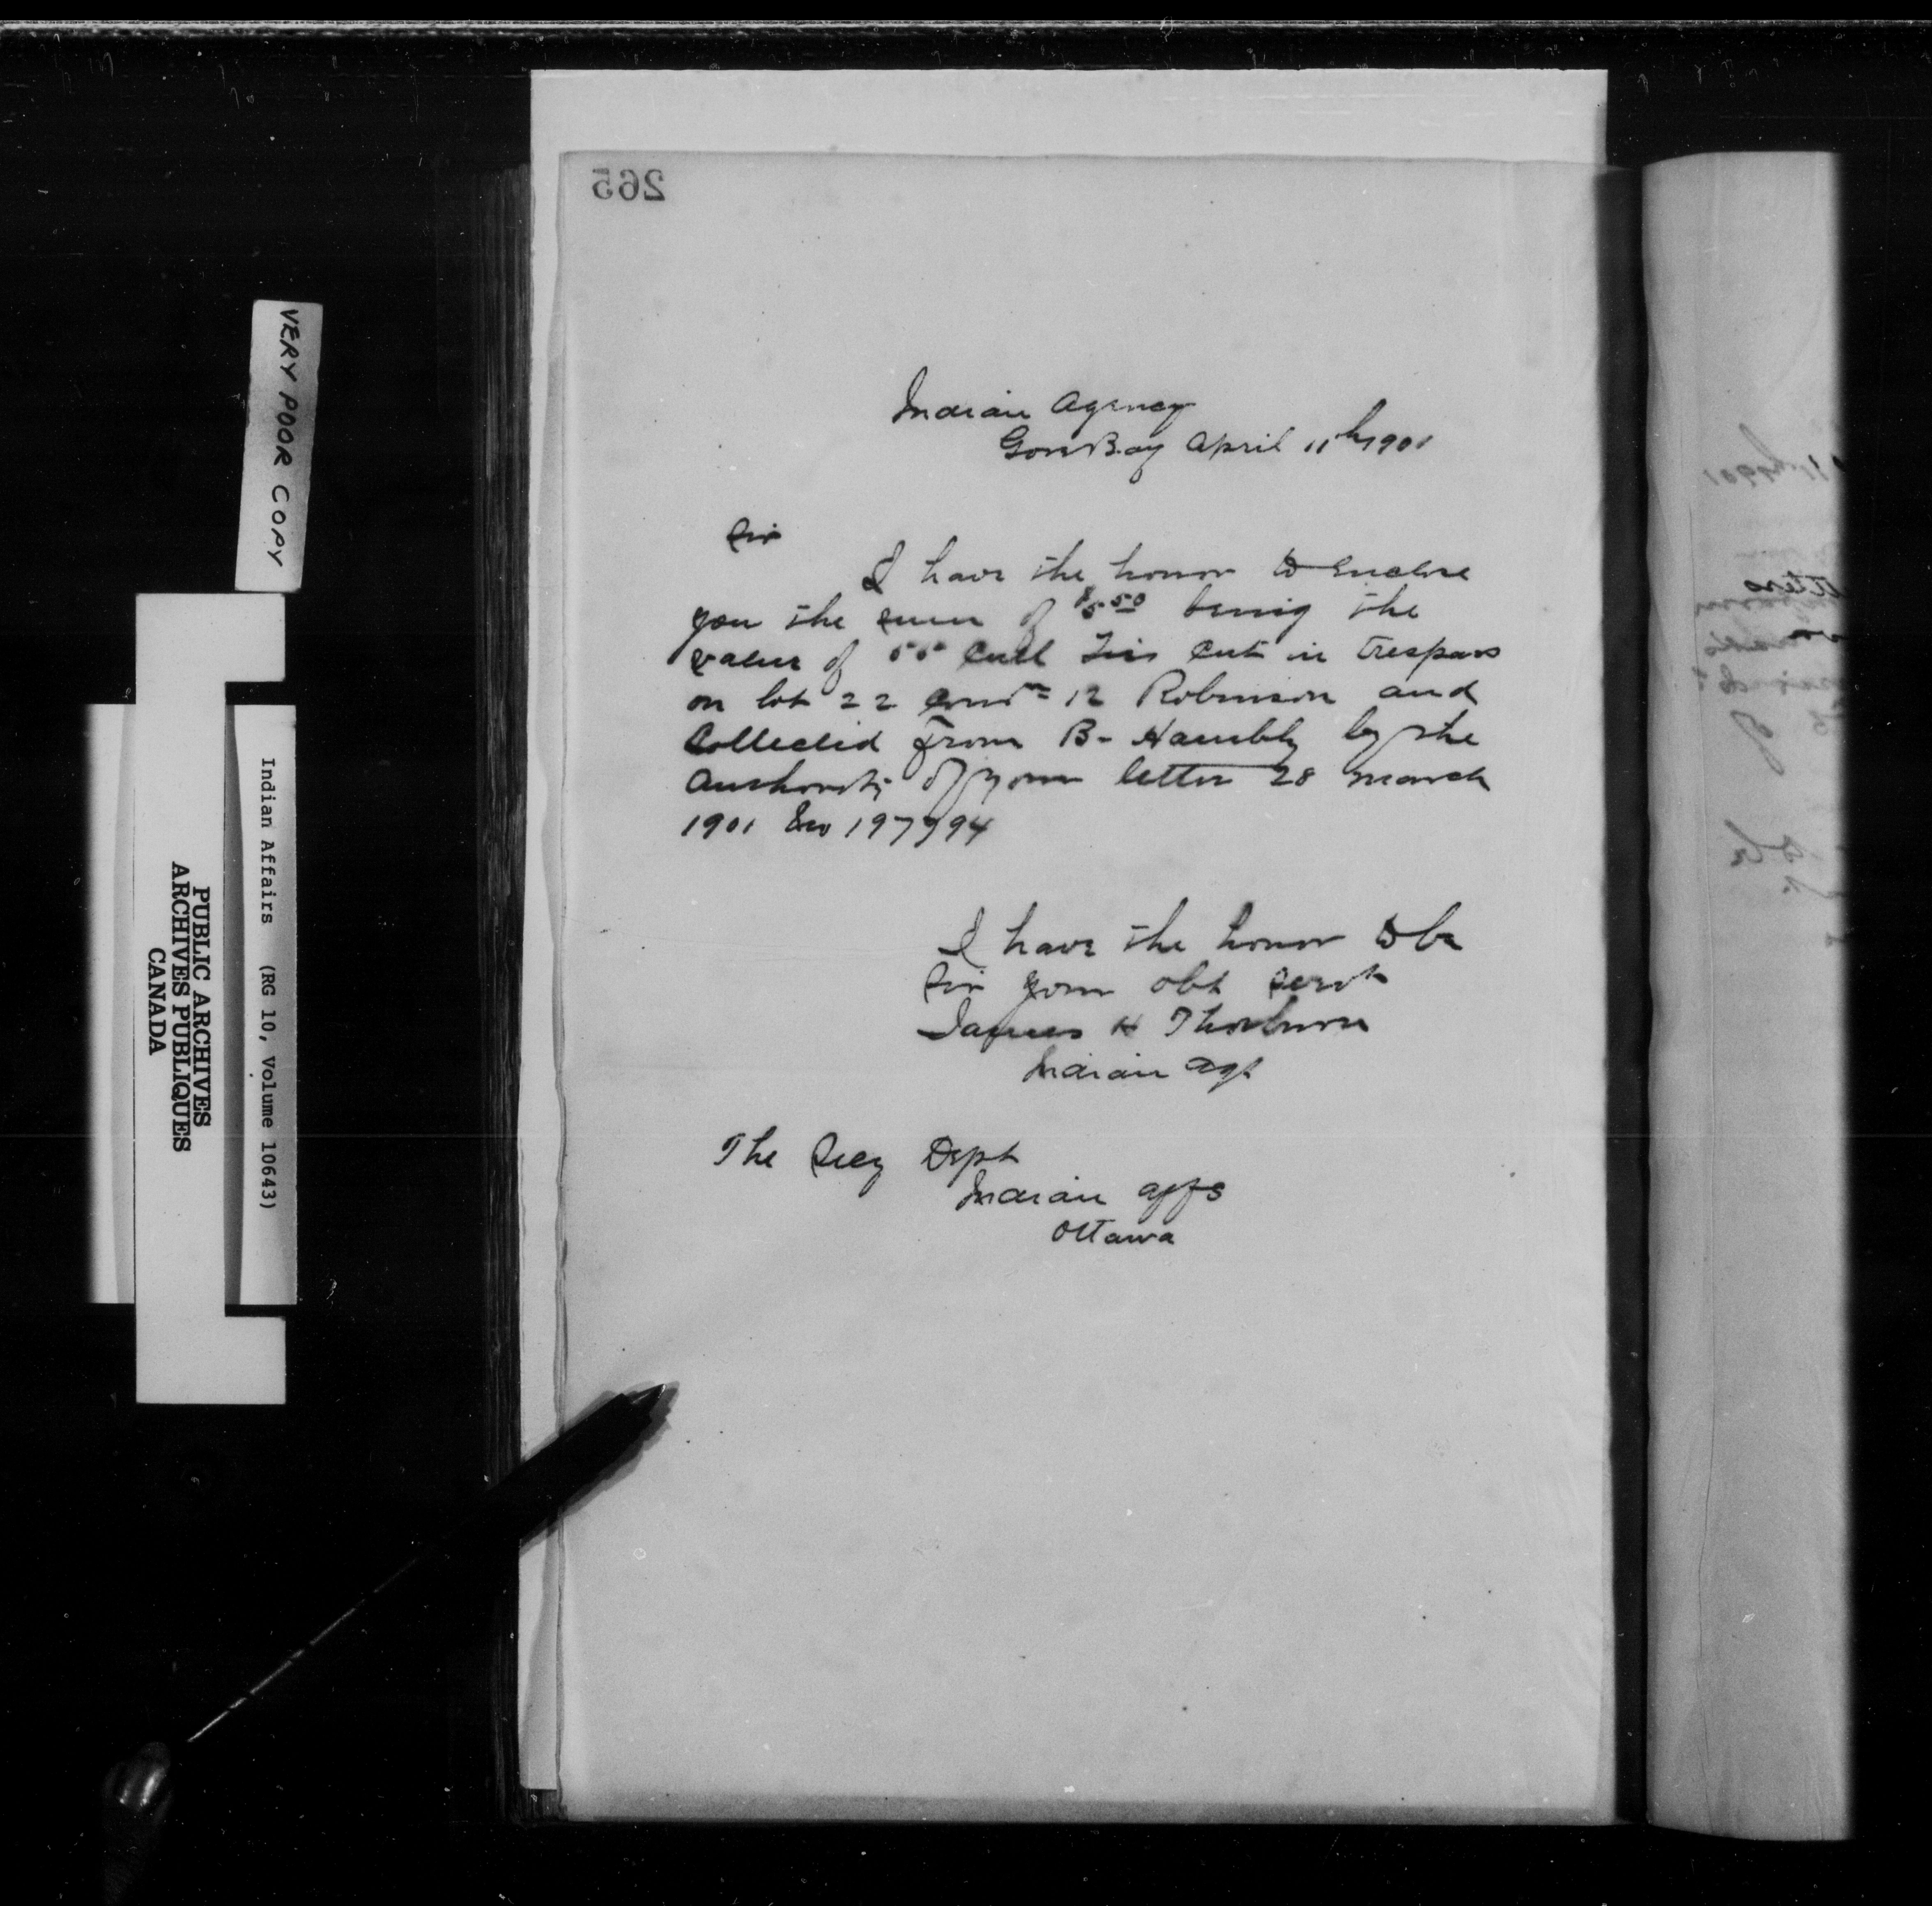 265
Indian Agency
Gore Bay April 11th 1901
Sir
I have the honor to enclose
you the sum of $5.50 being the
value of 55 cull Ties cut in trespass
on lot 22 Con 12 Robinson and
Collected from B- Hambly by the
Authority of your letter 28 March
1901 No 197994
I have the honor to be
Sir your obt servt
James H Thorburn
Indian Agt
The Secy Dept
Indian Affs
Ottawa
VERY POOR COPY
Indian Affairs (RG 10, Volume 10643)
PUBLIC ARCHIVES
ARCHIVES PUBLIQUES
CANADA